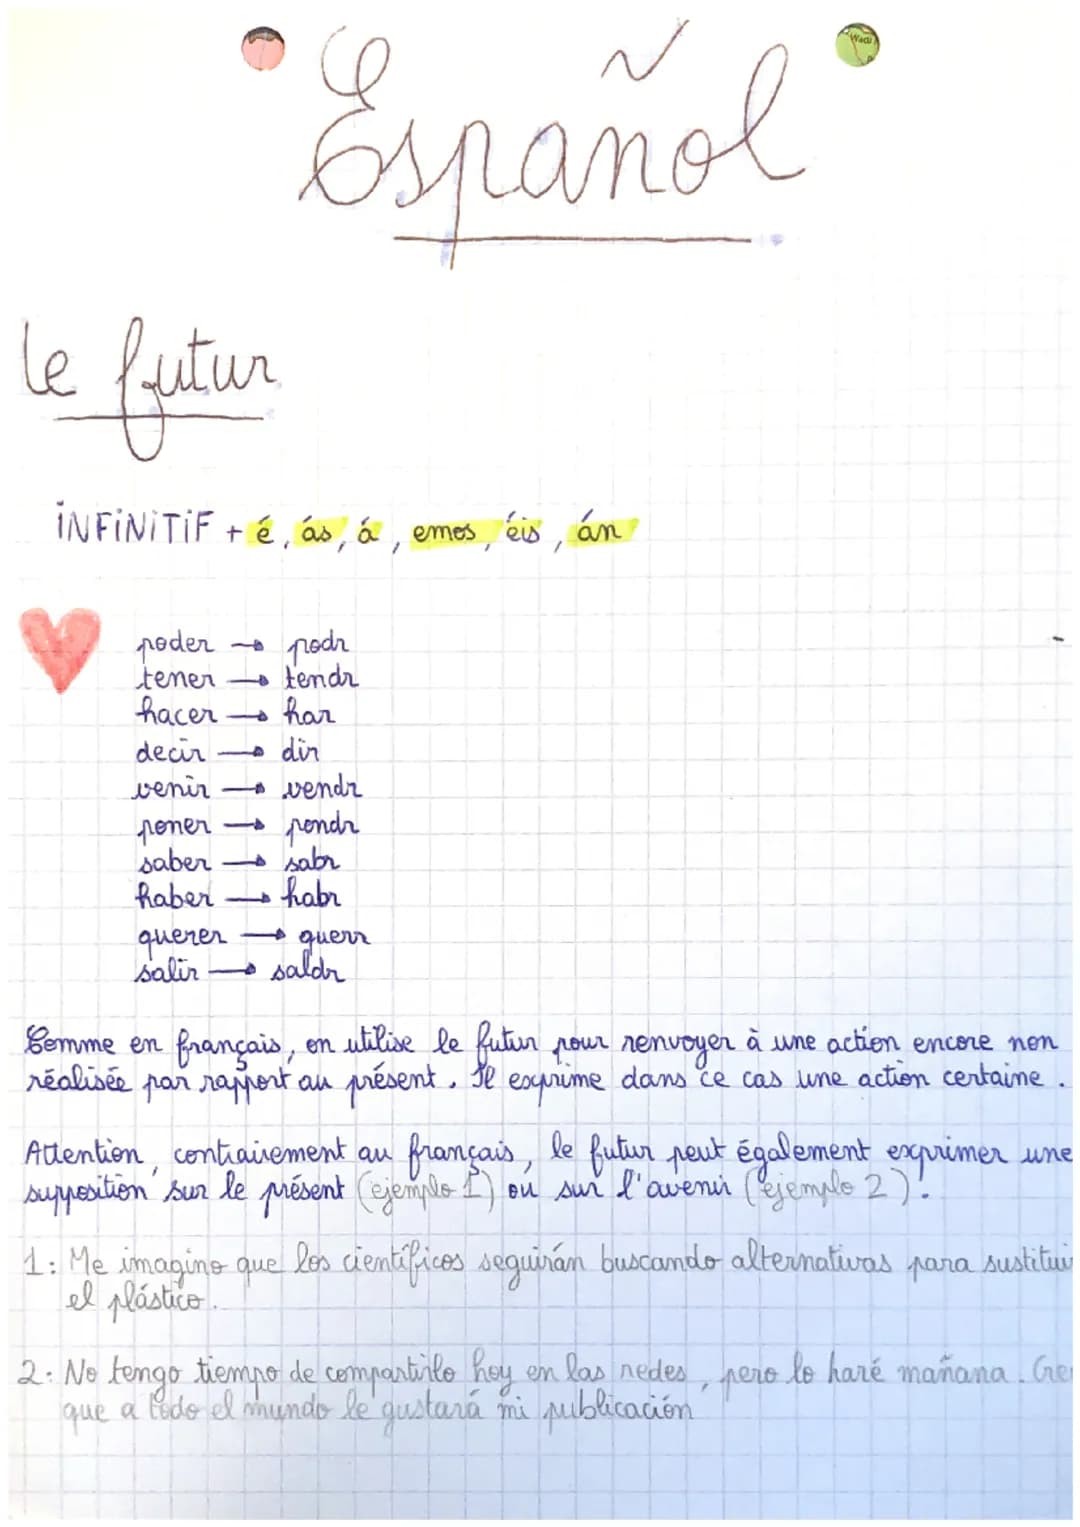 Español
le futur
INFINITIF + é, ás, á, emos, éis, án
poder → podr
tener → tendr
hacer → har
decir → dir
venir → vendr
poner → pondr
saber → sabr
haber → habr
querer → querr
salir → saldr
Comme en français, on utilise le futur pour renvoyer à une action encore non
réalisée par rapport au présent. Il exprime dans ce cas une action certaine.
Attention, contrairement au français, le futur peut également exprimer une
supposition sur le présent (ejemplo 1) ou sur l'avenir (ejemplo 2).
1: Me imagino que los científicos seguirán buscando alternativas para sustituir
el plástico.
2: No tengo tiempo de compartirlo hoy en las redes, pero lo haré mañana.
que a todo el mundo le gustará mi publicación